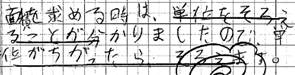 面積を求める時は、単位をそろえ
ることが分かりましたので、単
位がちがったら、そろえます。